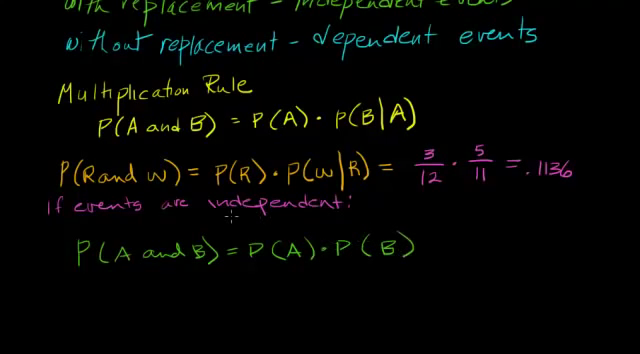 with replacement - independent events
without replacement - dependent events
Multiplication Rule
P(A and B) = P(A) · P(B|A)
P(R and W) = P(R) · P(W|R) = 3/12 · 5/11 = .1136
If events are independent:
P(A and B) = P(A) · P(B)